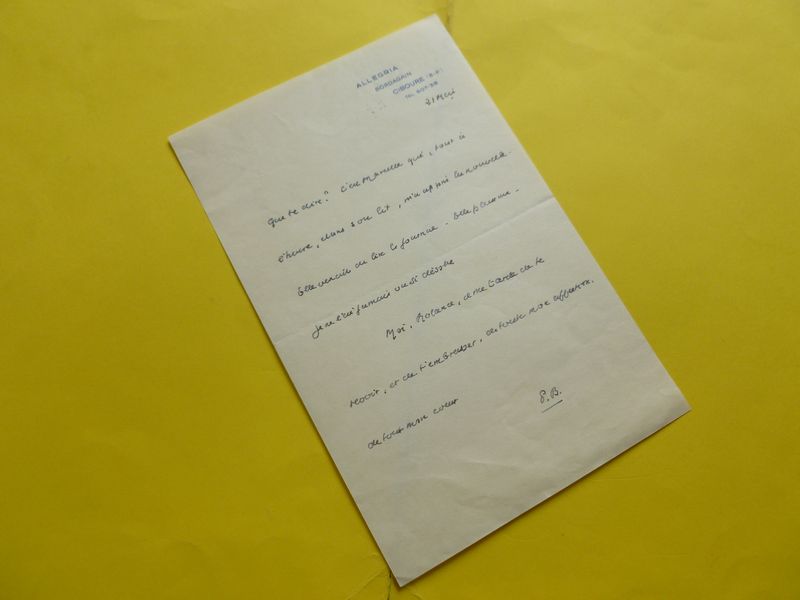 ALLEGRIA
BORDAGAIN
CIBOURE (B-P)
21 Mai
Que te dire? C'est Marcelle qui, tout à
l'heure, dans son lit, m'a appris la nouvelle.
Elle venait de lire le journal. Elle pleurait.
Je ne l'ai jamais vue si désolée
Moi, Rolance, j'ai hâte de te
revoir, et de t'embrasser, de toute mon affection.
de tout mon coeur
P.B.